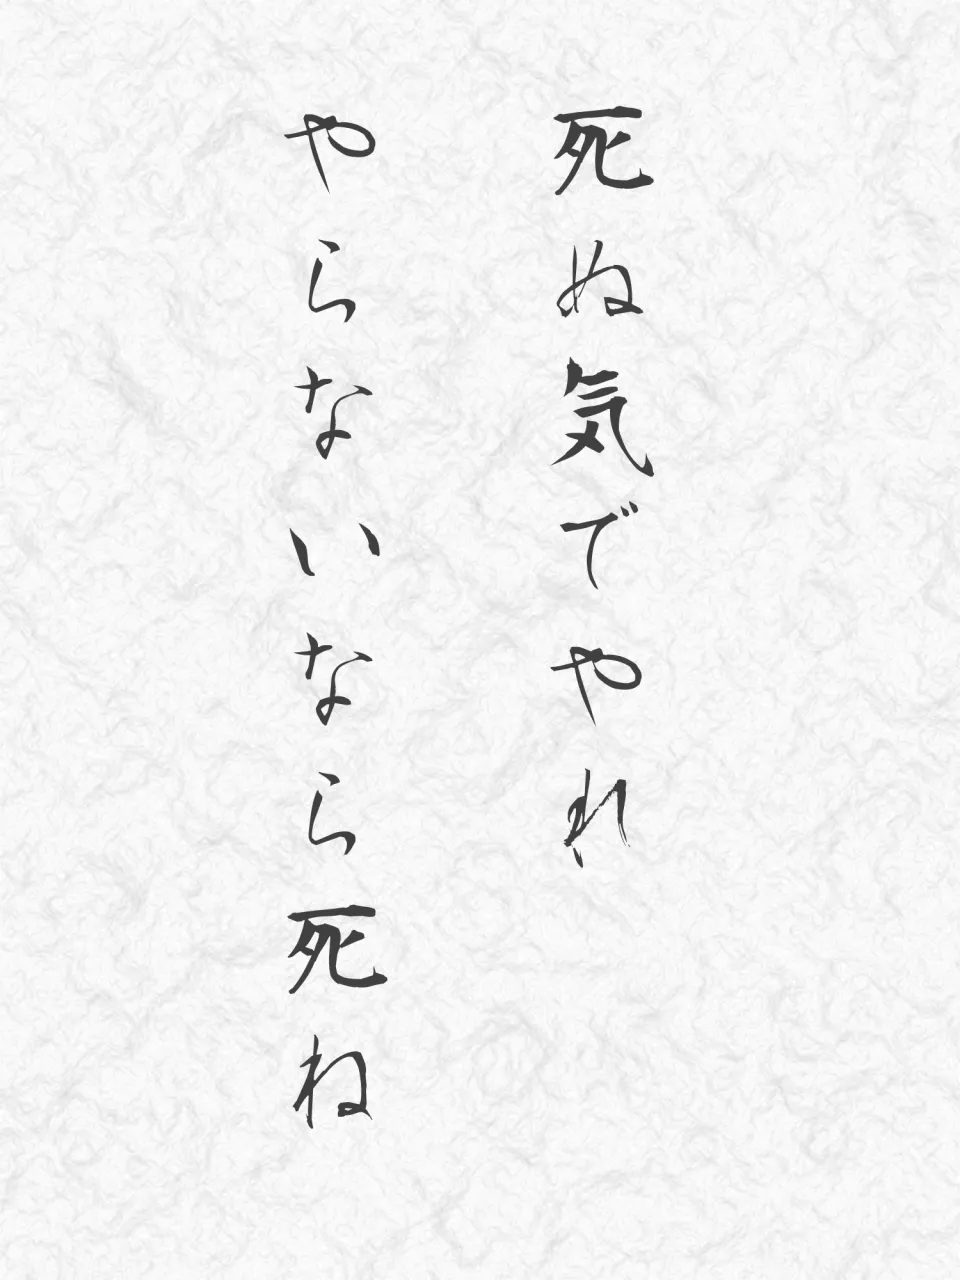 死ぬ気でやれ
やらないなら死ね